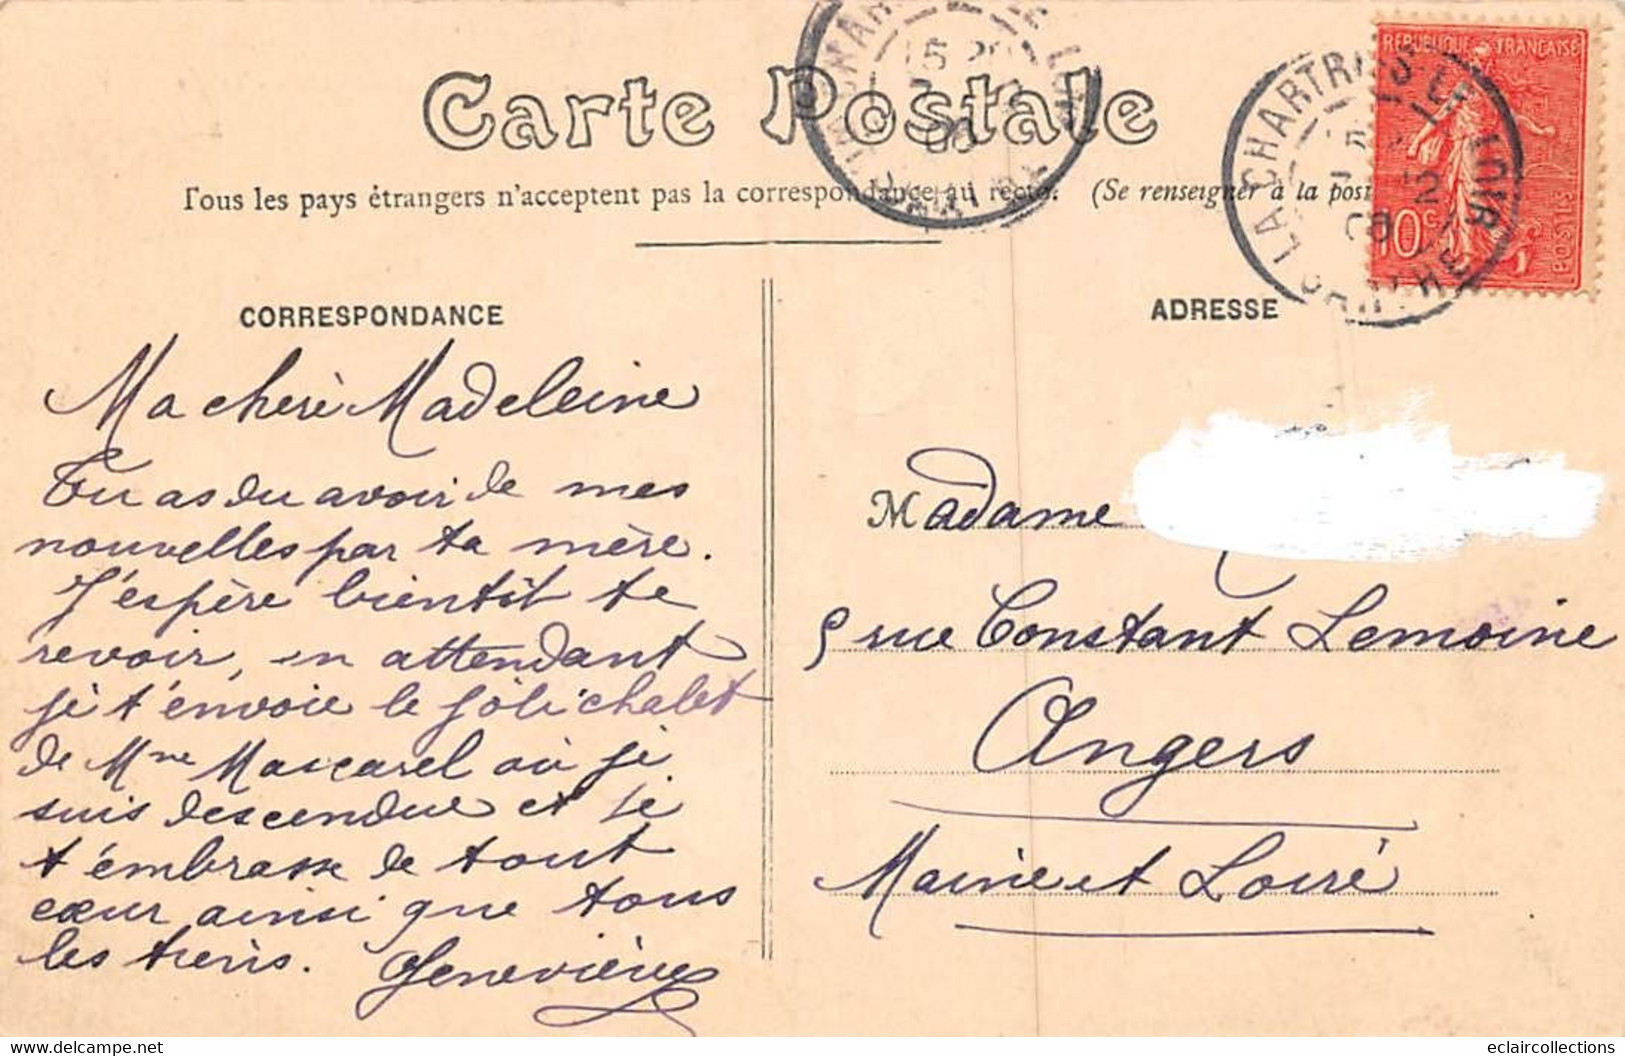 Carte Postale
Tous les pays étrangers n'acceptent pas la correspondance au recto. (Se renseigner à la post
CORRESPONDANCE
Ma cherè Madeleine
Tu as du avoir de mes
nouvelles par ta mère.
J'espère bientôt te
revoir, en attendant
je t'envoie le joli chalet
de Mme Mascarel où je
suis descendue et je
t'embrasse de tout
cœur ainsi que tous
les tiens. Geneviève
REPUBLIQUE FRANÇAISE
10c
POSTES
LA CHARTRE-S-LE LOIR
SARTHE
ADRESSE
Madame
5 rue Constant Lemoine
Angers
Maine et Loire
www.delcampe.net
eclaircollections